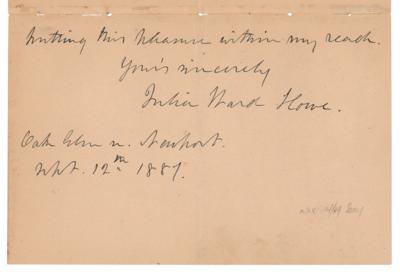 putting this pleasure within my reach.
Yours sincerely
Julia Ward Howe.
Oak Glen n. Newport.
Sept. 12th 1887.